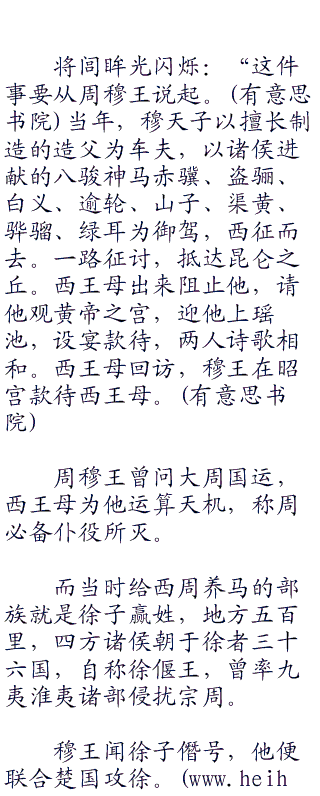 将闾眸光闪烁：“这件
事要从周穆王说起。(有意思
书院)当年，穆天子以擅长制
造的造父为车夫，以诸侯进
献的八骏神马赤骥、盗骊、
白义、逾轮、山子、渠黄、
骅骝、绿耳为御驾，西征而
去。一路征讨，抵达昆仑之
丘。西王母出来阻止他，请
他观黄帝之宫，迎他上瑶
池，设宴款待，两人诗歌相
和。西王母回访，穆王在昭
宫款待西王母。(有意思书
院)
周穆王曾问大周国运，
西王母为他运算天机，称周
必备仆役所灭。
而当时给西周养马的部
族就是徐子嬴姓，地方五百
里，四方诸侯朝于徐者三十
六国，自称徐偃王，曾率九
夷淮夷诸部侵扰宗周。
穆王闻徐子僭号，他便
联合楚国攻徐。(www.heih